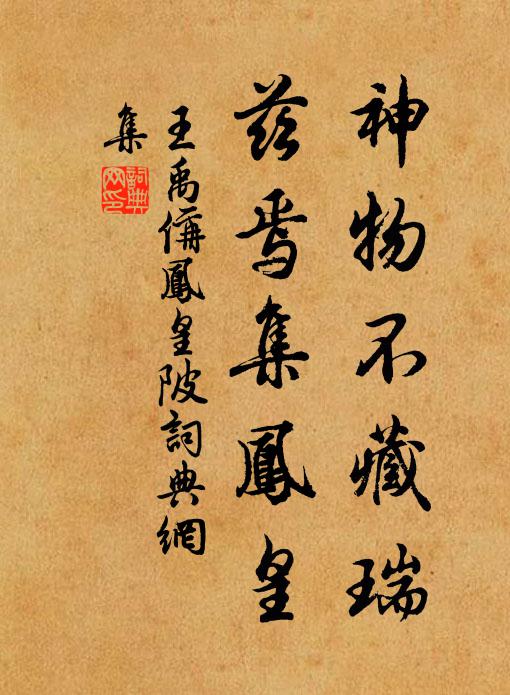 神物不藏瑞
茲焉集鳳皇
王禹偁鳳皇陂詞典網
集
詞典网印